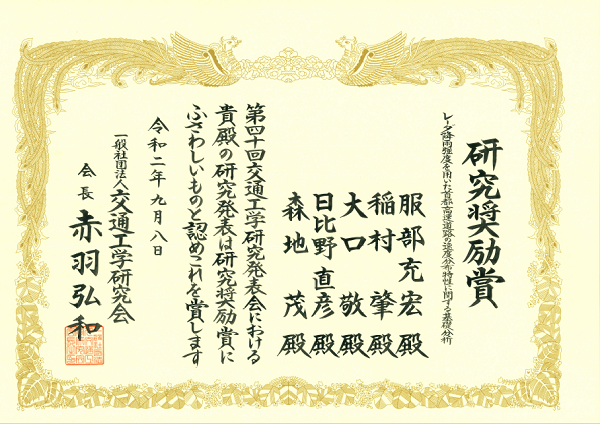 研究奨励賞
レーダ降雨強度を用いた首都高速道路の速度分布特性に関する基礎分析
服部充宏殿
稲村肇殿
大口敬殿
日比野直彦殿
森地茂殿
第四十回交通工学研究発表会における
貴殿の研究発表は研究奨励賞に
ふさわしいものと認めこれを賞します
令和二年九月八日
一般社団法人交通工学研究会
会長赤羽弘和